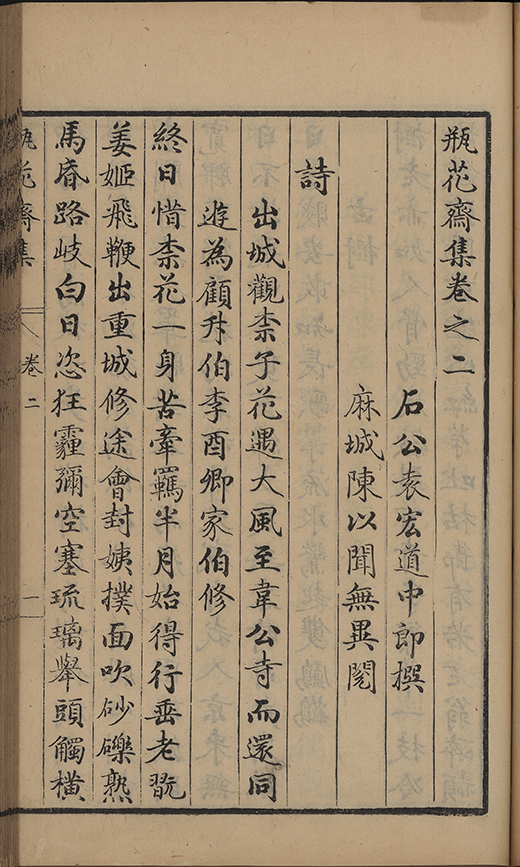 瓶花齋集卷之二
石公袁宏道中郎撰
麻城陳以聞無異閱
詩
出城觀柰子花遇大風至韋公寺而還同
遊為顧升伯李酉卿家伯修
終日惜柰花一身苦牽羈半月始得行垂老翫
姜姬飛鞭出重城修途會封姨撲面吹砂礫熟
馬昏路岐白日恣狂霾彌空塞琉璃舉頭觸橫
瓶花齋集
卷二
一